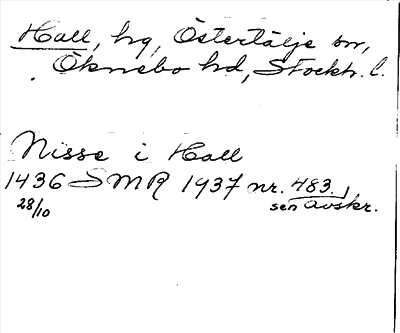 Hall, hg, Östertälje sn,
Öknebo hd, Stockh. l.
Nisse i Hall
1436 SMR 1937 nr. 483.
28/10 sen avskr.